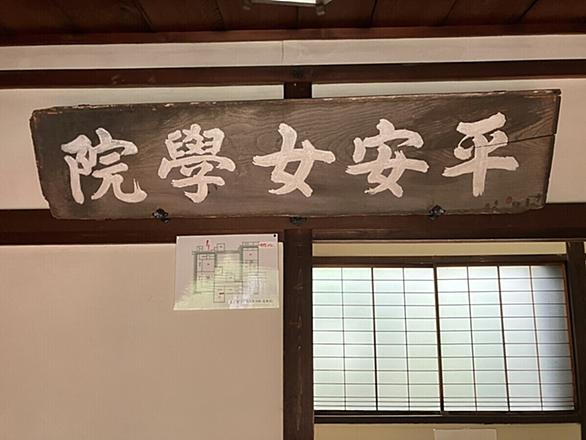 平安女學院